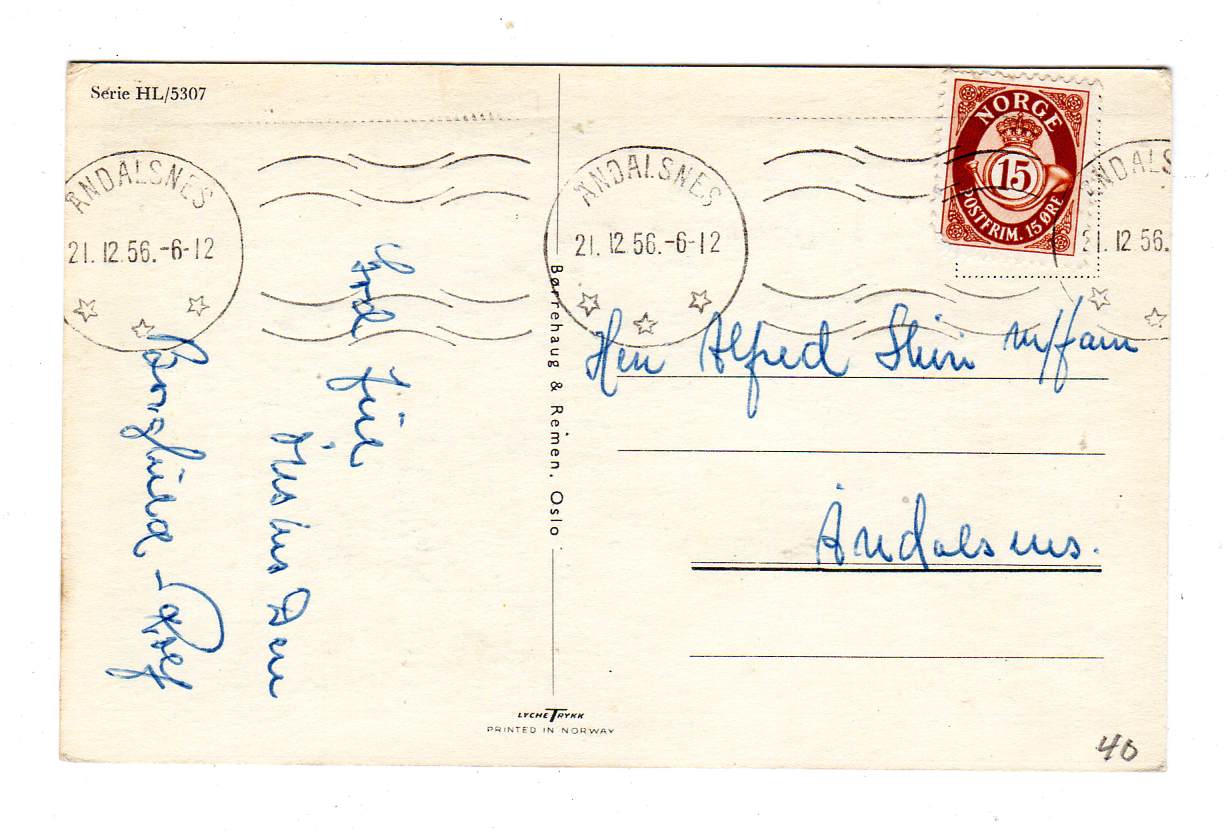 Serie HL/5307
ÅNDALSNES
21.12.56.-6-12
ÅNDALSNES
21.12.56.-6-12
ÅNDALS
21.12.56.
NORGE
15
POSTFRIM. 15 ØRE
God Jul
ønskes Den
Borghild - Rolf
Børrehaug & Remen, Oslo
Herr Alfred m/fam
Åndalsnes.
LYCHE TRYKK
PRINTED IN NORWAY
40